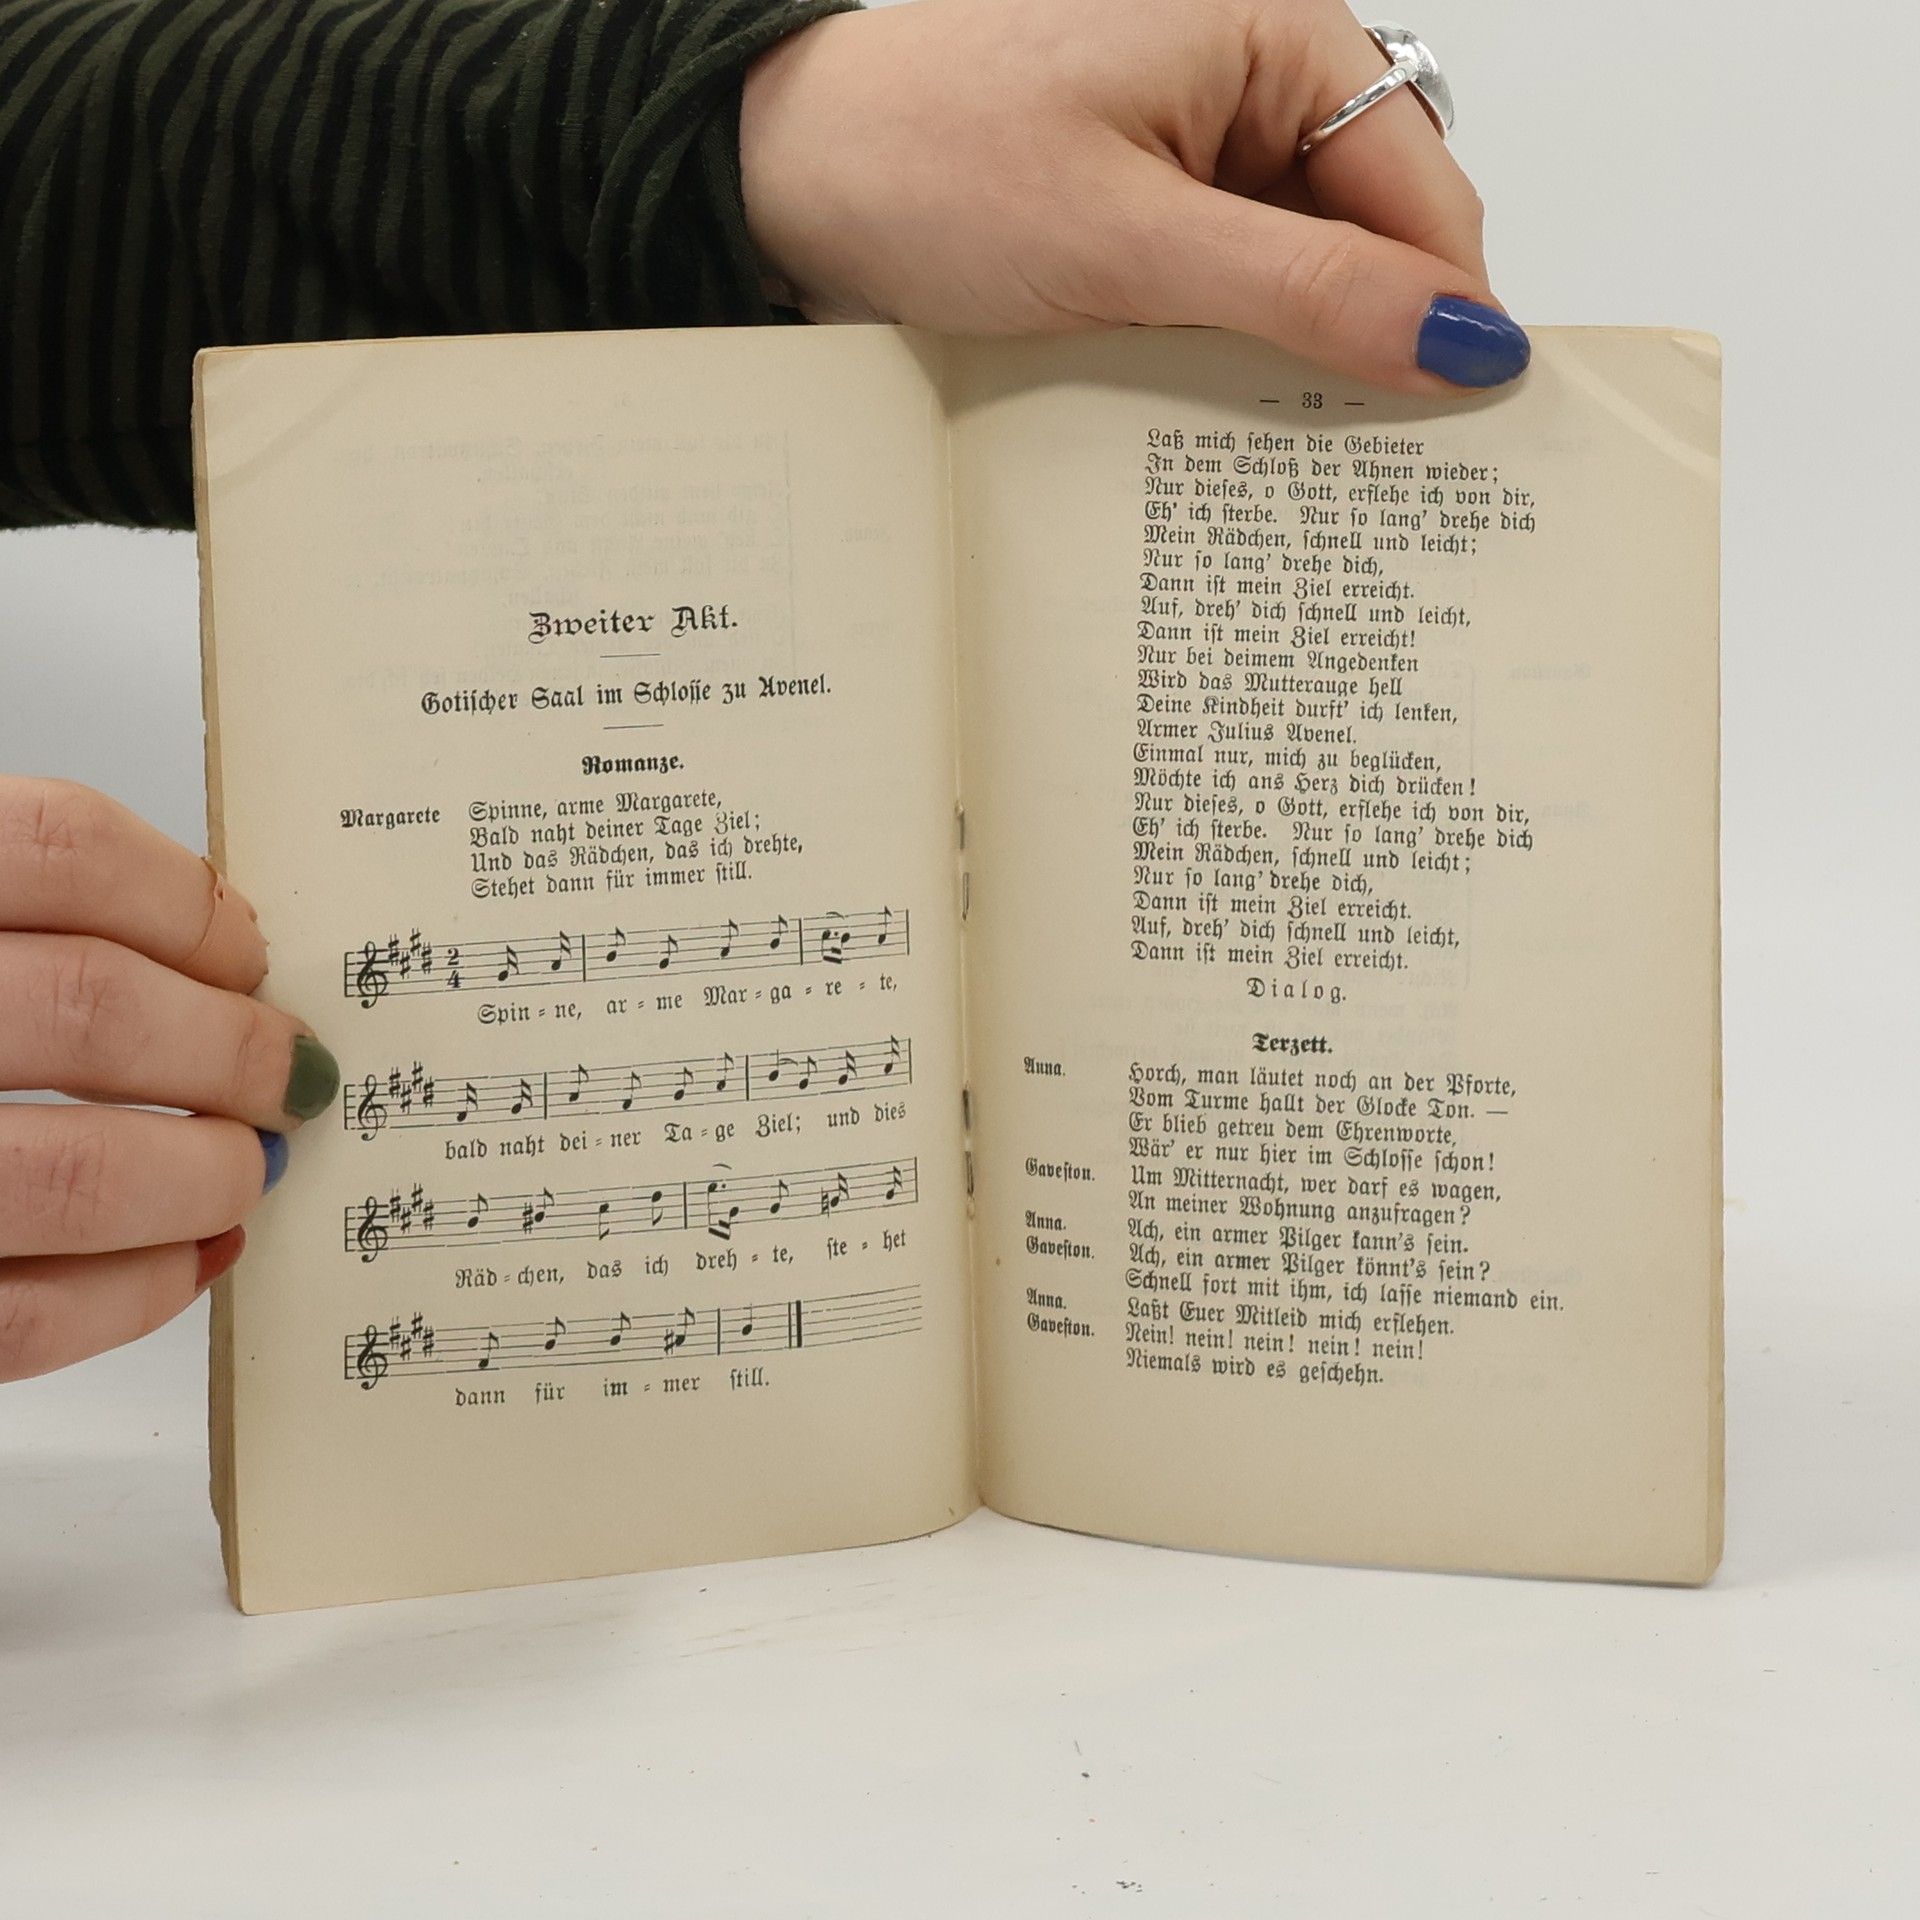 Zweiter Akt.
Gotischer Saal im Schlosse zu Avenel.
Romanze.
Margarete Spinne, arme Margarete,
Bald naht deiner Tage Ziel;
Und das Rädchen, das ich drehte,
Stehet dann für immer still.
2
4
Spin = ne, ar = me Mar = ga = re = te,
bald naht dei = ner Ta = ge Ziel; und dies
Räd = chen, das ich dreh = te, ste = het
dann für im = mer still.
— 33 —
Laß mich sehen die Gebieter
In dem Schloß der Ahnen wieder;
Nur dieses, o Gott, erflehe ich von dir,
Eh' ich sterbe. Nur so lang' drehe dich
Mein Rädchen, schnell und leicht;
Nur so lang' drehe dich,
Dann ist mein Ziel erreicht.
Auf, dreh' dich schnell und leicht,
Dann ist mein Ziel erreicht!
Nur bei deimem Angedenken
Wird das Mutterauge hell
Deine Kindheit durft' ich lenken,
Armer Julius Avenel.
Einmal nur, mich zu beglücken,
Möchte ich ans Herz dich drücken!
Nur dieses, o Gott, erflehe ich von dir,
Eh' ich sterbe. Nur so lang' drehe dich
Mein Rädchen, schnell und leicht;
Nur so lang' drehe dich,
Dann ist mein Ziel erreicht.
Auf, dreh' dich schnell und leicht,
Dann ist mein Ziel erreicht.
Dialog.
Terzett.
Anna. Horch, man läutet noch an der Pforte,
Vom Turme hallt der Glocke Ton. —
Er blieb getreu dem Ehrenworte,
Wär' er nur hier im Schlosse schon!
Gaveston. Um Mitternacht, wer darf es wagen,
An meiner Wohnung anzufragen?
Anna. Ach, ein armer Pilger kann's sein.
Gaveston. Ach, ein armer Pilger könnt's sein?
Schnell fort mit ihm, ich lasse niemand ein.
Anna. Laßt Euer Mitleid mich erflehen.
Gaveston. Nein! nein! nein! nein! nein!
Niemals wird es geschehn.